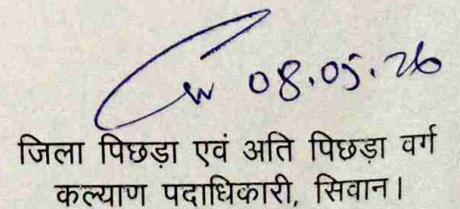 08.05.26
जिला पिछड़ा एवं अति पिछड़ा वर्ग
कल्याण पदाधिकारी, सिवान।